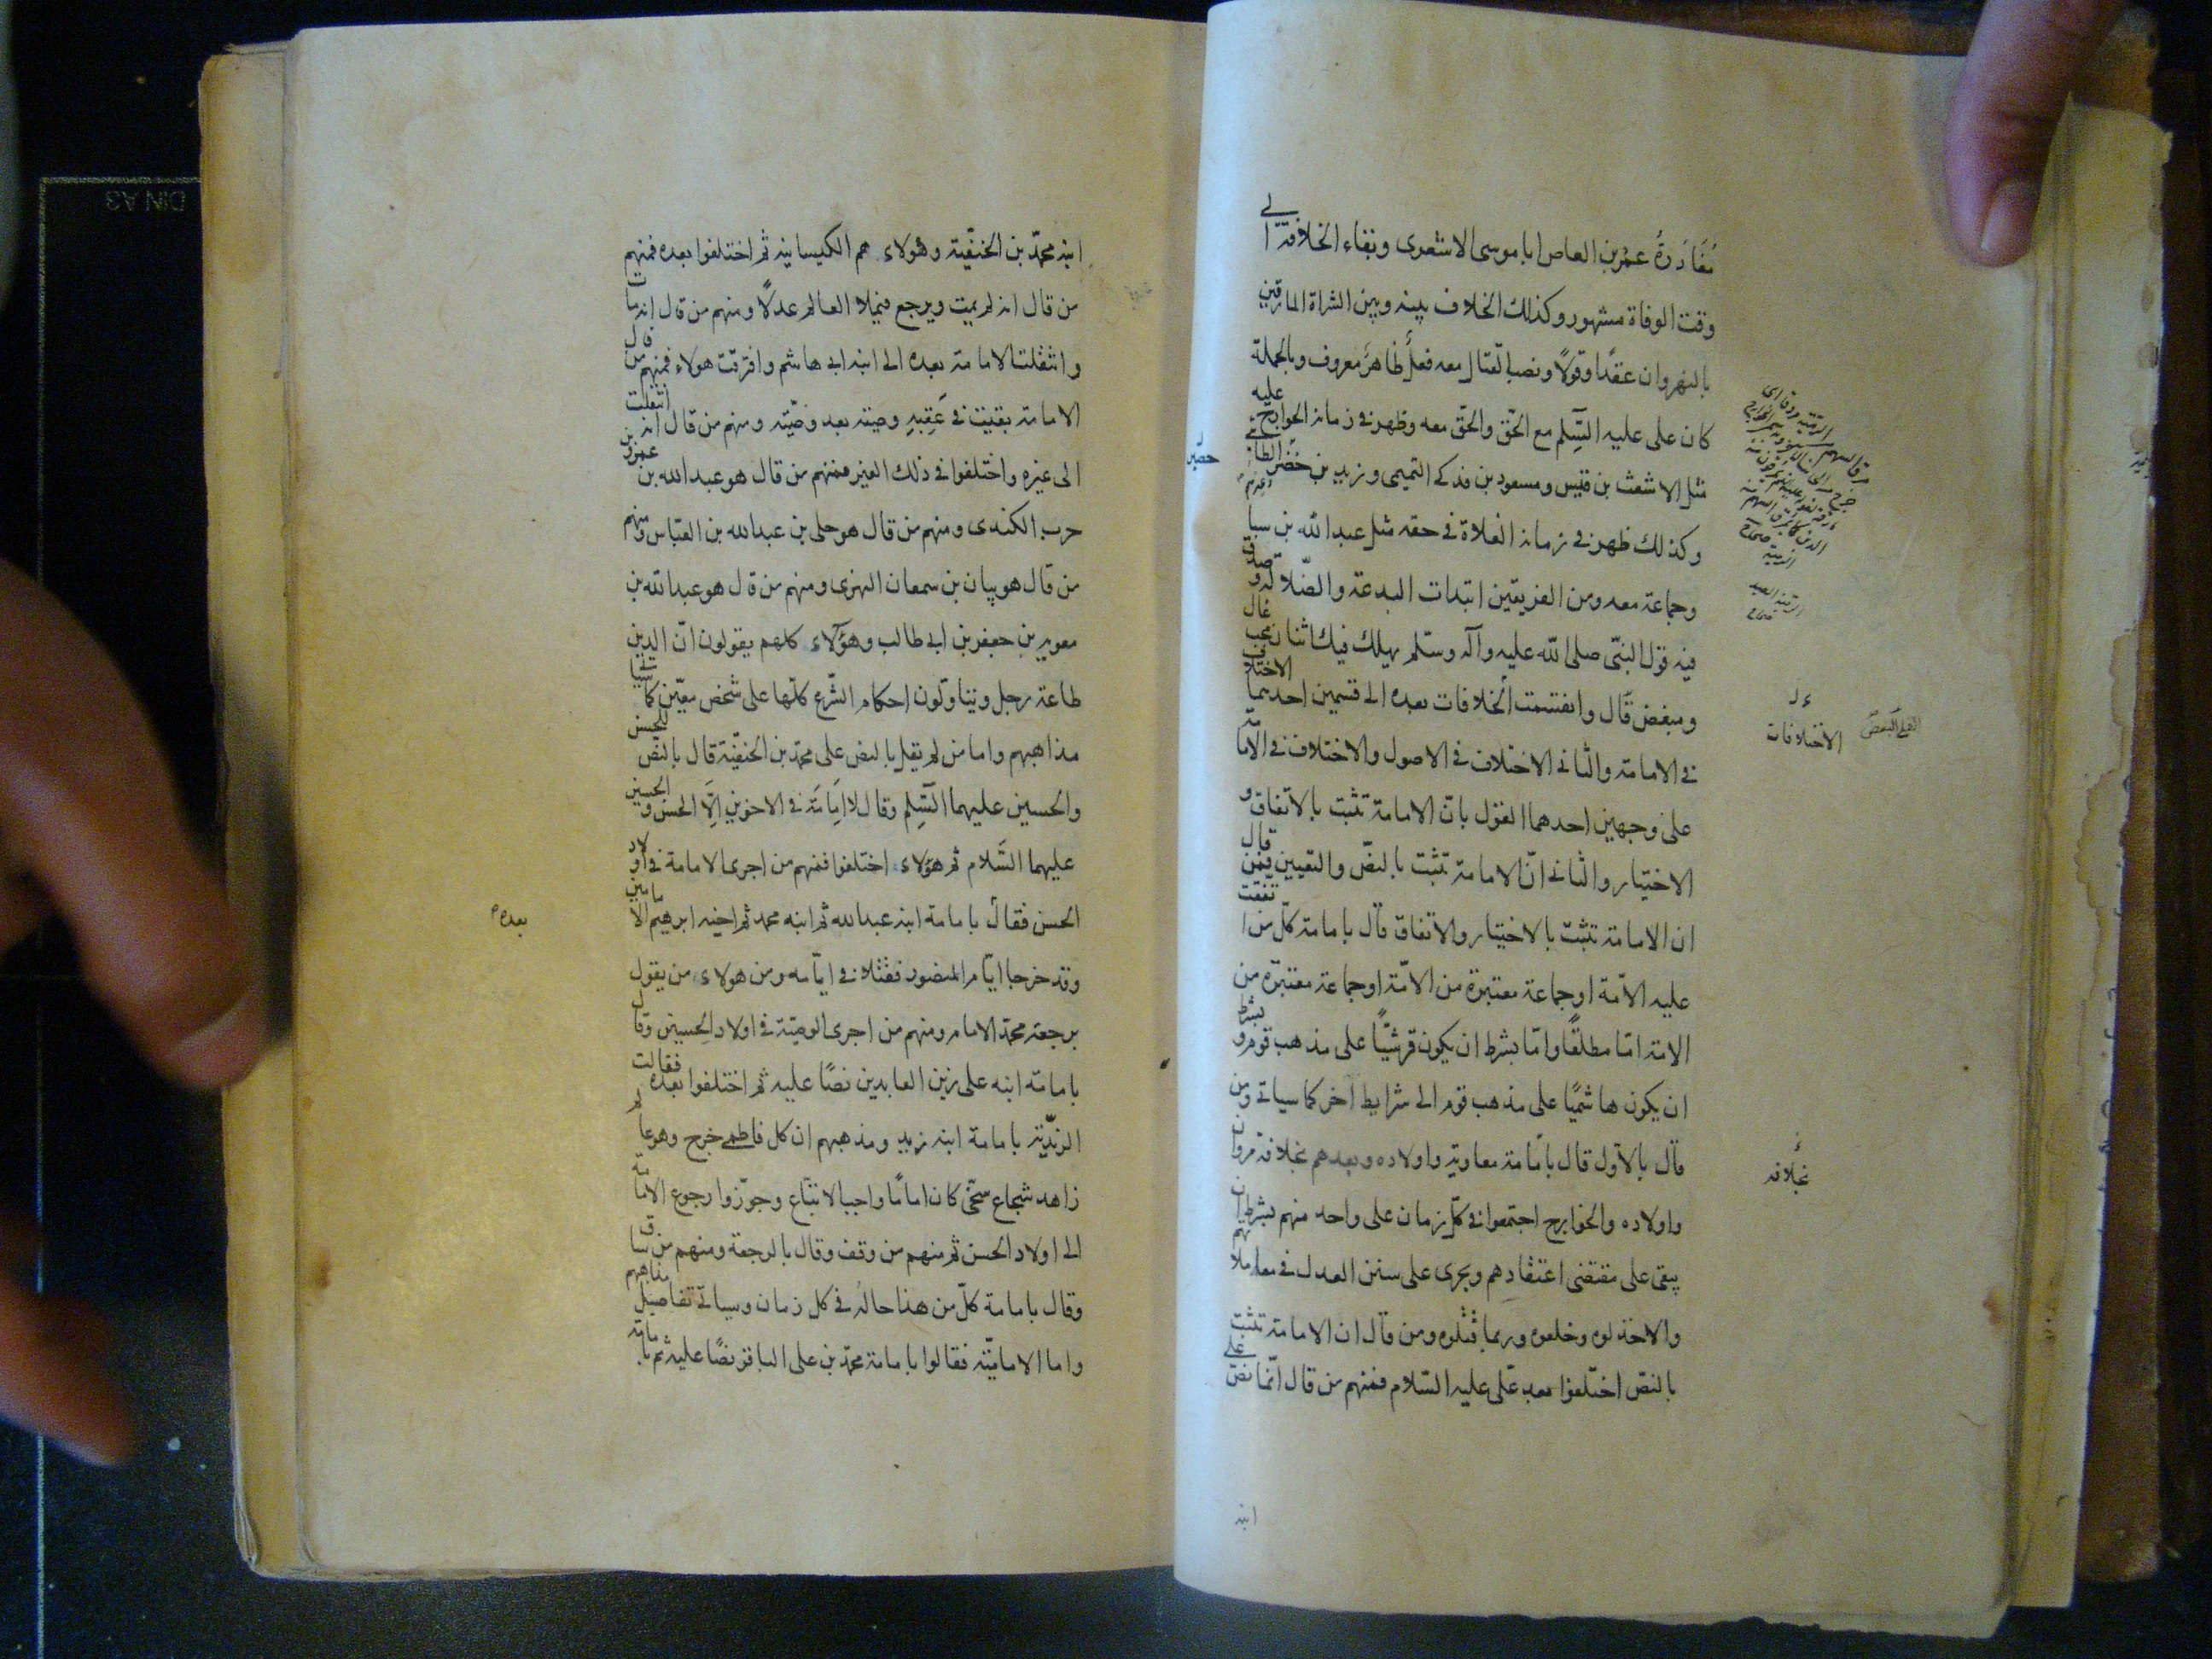 مغادرة عمرو بن العاص ابا موسى الاشعرى وبقاء الخلافة الى
وقت الوفاة مشهور وكذلك الخلاف بينه وبين الشراة المارقين
بالنهروان عقدًا وقولًا ونصب القتال معه فعلٌ ظاهرٌ معروف وبالجملة
كان على عليه السّلم مع الحّق والحّق معه وظهر فى زمانه الخوارج عليه
مثل الاشعث بن قيس ومسعود بن فدكى التميمى وزيد بن حضر الطائى وغيرهم
وكذلك ظهر فى زمانه الغلاة فى حقه مثل عبدالله بن سبا
وجماعة معه ومن الفريقين ابتدات البدعة والضّلالة وصدق
فيه قول النبّى صلى الله عليه وآله وسلّم يهلك فيك اثنان محب غال
ومبغض قال وانقسمت الخلافات بعده الى قسمين احدهما الاختلاف
فى الامامة والثانى الاختلاف فى الاصول والاختلاف فى الامامة
على وجهين احدهما القول بانّ الامامة تثبت بالاتفاق و
الاختيار والثانى انّ الامامة تثبت بالنصّ والتعيين فمن قال
ان الامامة تثبت بالاختيار والاتفاق قال بامامة كلّ من اتّفقت
عليه الامّة او جماعة معتبرة من الامّة او جماعة معتبرة من
الامة امّا مطلقًا وامّا بشرط ان يكون قرشيًّا على مذهب قوم و بشرط
ان يكون هاشميًا على مذهب قوم الى شرايط اخر كما سياتى ومن
قال بالاول قال بامامة معاوية واولاده وبعدهم بخلافة مروان
واولاده والخوارج اجتمعوا فى كلّ زمان على واحد منهم بشرط ان
يبقى على مقتضى اعتقادهم ويجرى على سنن العدل فى معاملاتهم
والا خذلوه وخلعوه وربما قتلوه ومن قال ان الامامة تثبت
بالنصّ اختلفوا بعد علّى عليه السّلام فمنهم من قال انّما نصّ على
ابنه
حصير
الاختلافات
بخلافه
ابنه محمّد بن الحنفيّة وهولاء هم الكيسانيه ثم اختلفوا بعده فمنهم
من قال انه لم يمت ويرجع فيملا العالم عدلًا ومنهم من قال انه مات
وانتقلت الامامة بعده الى ابنه ابى هاشم وافترقت هولاء فمنهم من قال
الامامة بقيت فى عَقِبِهِ وصيّة بعد وصيّة ومنهم من قال انه انتقلت
الى غيره واختلفوا فى ذلك الغير فمنهم من قال هو عبدالله بن عمرو بن
حرب الكندى ومنهم من قال هو على بن عبدالله بن العبّاس ومنهم
من قال هو بيان بن سمعان النهدى ومنهم من قال هو عبدالله بن
معوية بن جعفر بن ابى طالب وهؤلاء كلهم يقولون انّ الدين
طاعة رجل ويتاولون احكام الشّرع كلّها على شخص معيّن كما سياتى
مذاهبهم واما من لم يقل بالنص على محمّد بن الحنفيّة قال بالنص للحسن
والحسين عليهما السّلم وقال لا امامة فى الاخوين الّا الحسن والحسين
عليهما السّلام ثم هؤلاء اختلفوا فمنهم من اجرى الامامة فى اولاد
الحسن فقال بامامة ابنه عبدالله ثم ابنه محمد ثم اخيه ابرهيم الامامين
وقد خرجا ايّام المنصور فقتلا فى ايّامه ومن هولاء من يقول
برجعة محمّد الامام ومنهم من اجرى الوصيّة فى اولاد الحسين وقال
بامامة ابنه على زين العابدين نصًا عليه ثم اختلفوا بعده فقالت
الزيديّة بامامة ابنه زيد ومذهبهم ان كل فاطمى خرج وهو عالم
زاهد شجاع سخّى كان امامًا واجب الاتباع وجوّزوا رجوع الامامة
الى اولاد الحسن ثم منهم من وقف وقال بالرجعة ومنهم من ساق
وقال بامامة كلّ من هذا حاله فى كل زمان وسياتى تفاصيل مذاهبهم
واما الامامّية فقالوا بامامة محمّد بن على الباقر نصًا عليه ثم بامامة
بعده